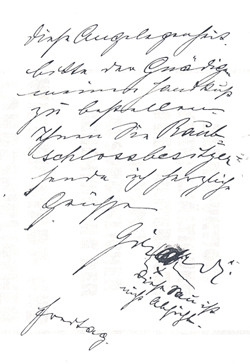 diese Angelegenheit.
bitte der Gnädigen
meinen Handkuß
zu bestellen.
Ihnen Sie Raub-
schlossbesitzer
sende ich herzliche
Grüsse
x
Diese Sau ist
nicht Absicht.
Freitag.